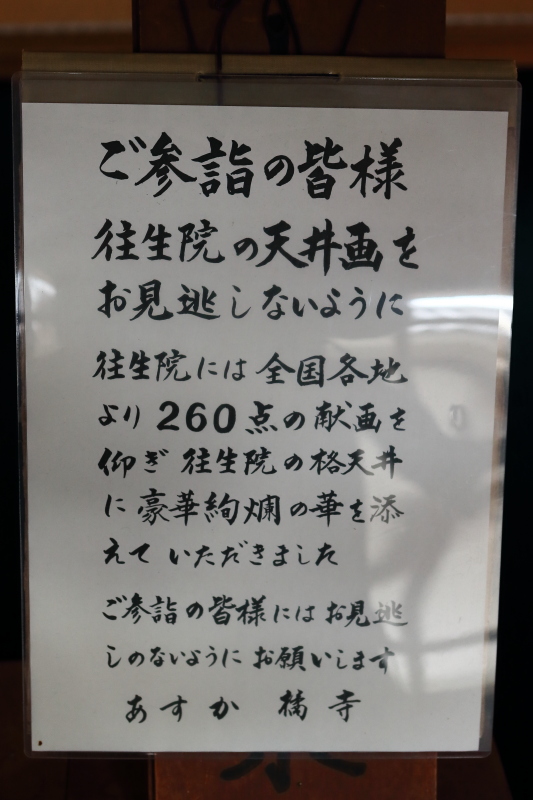 ご参詣の皆様
往生院の天井画を
お見逃しないように
往生院には全国各地
より260点の献画を
仰ぎ往生院の格天井
に豪華絢爛の華を添
えていただきました
ご参詣の皆様にはお見逃
しのないようにお願いします
あすか 橘寺